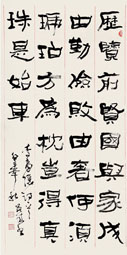 歷覽前賢國與家成
由勤儉敗由奢何須
琥珀方為枕豈得真
珠是始車